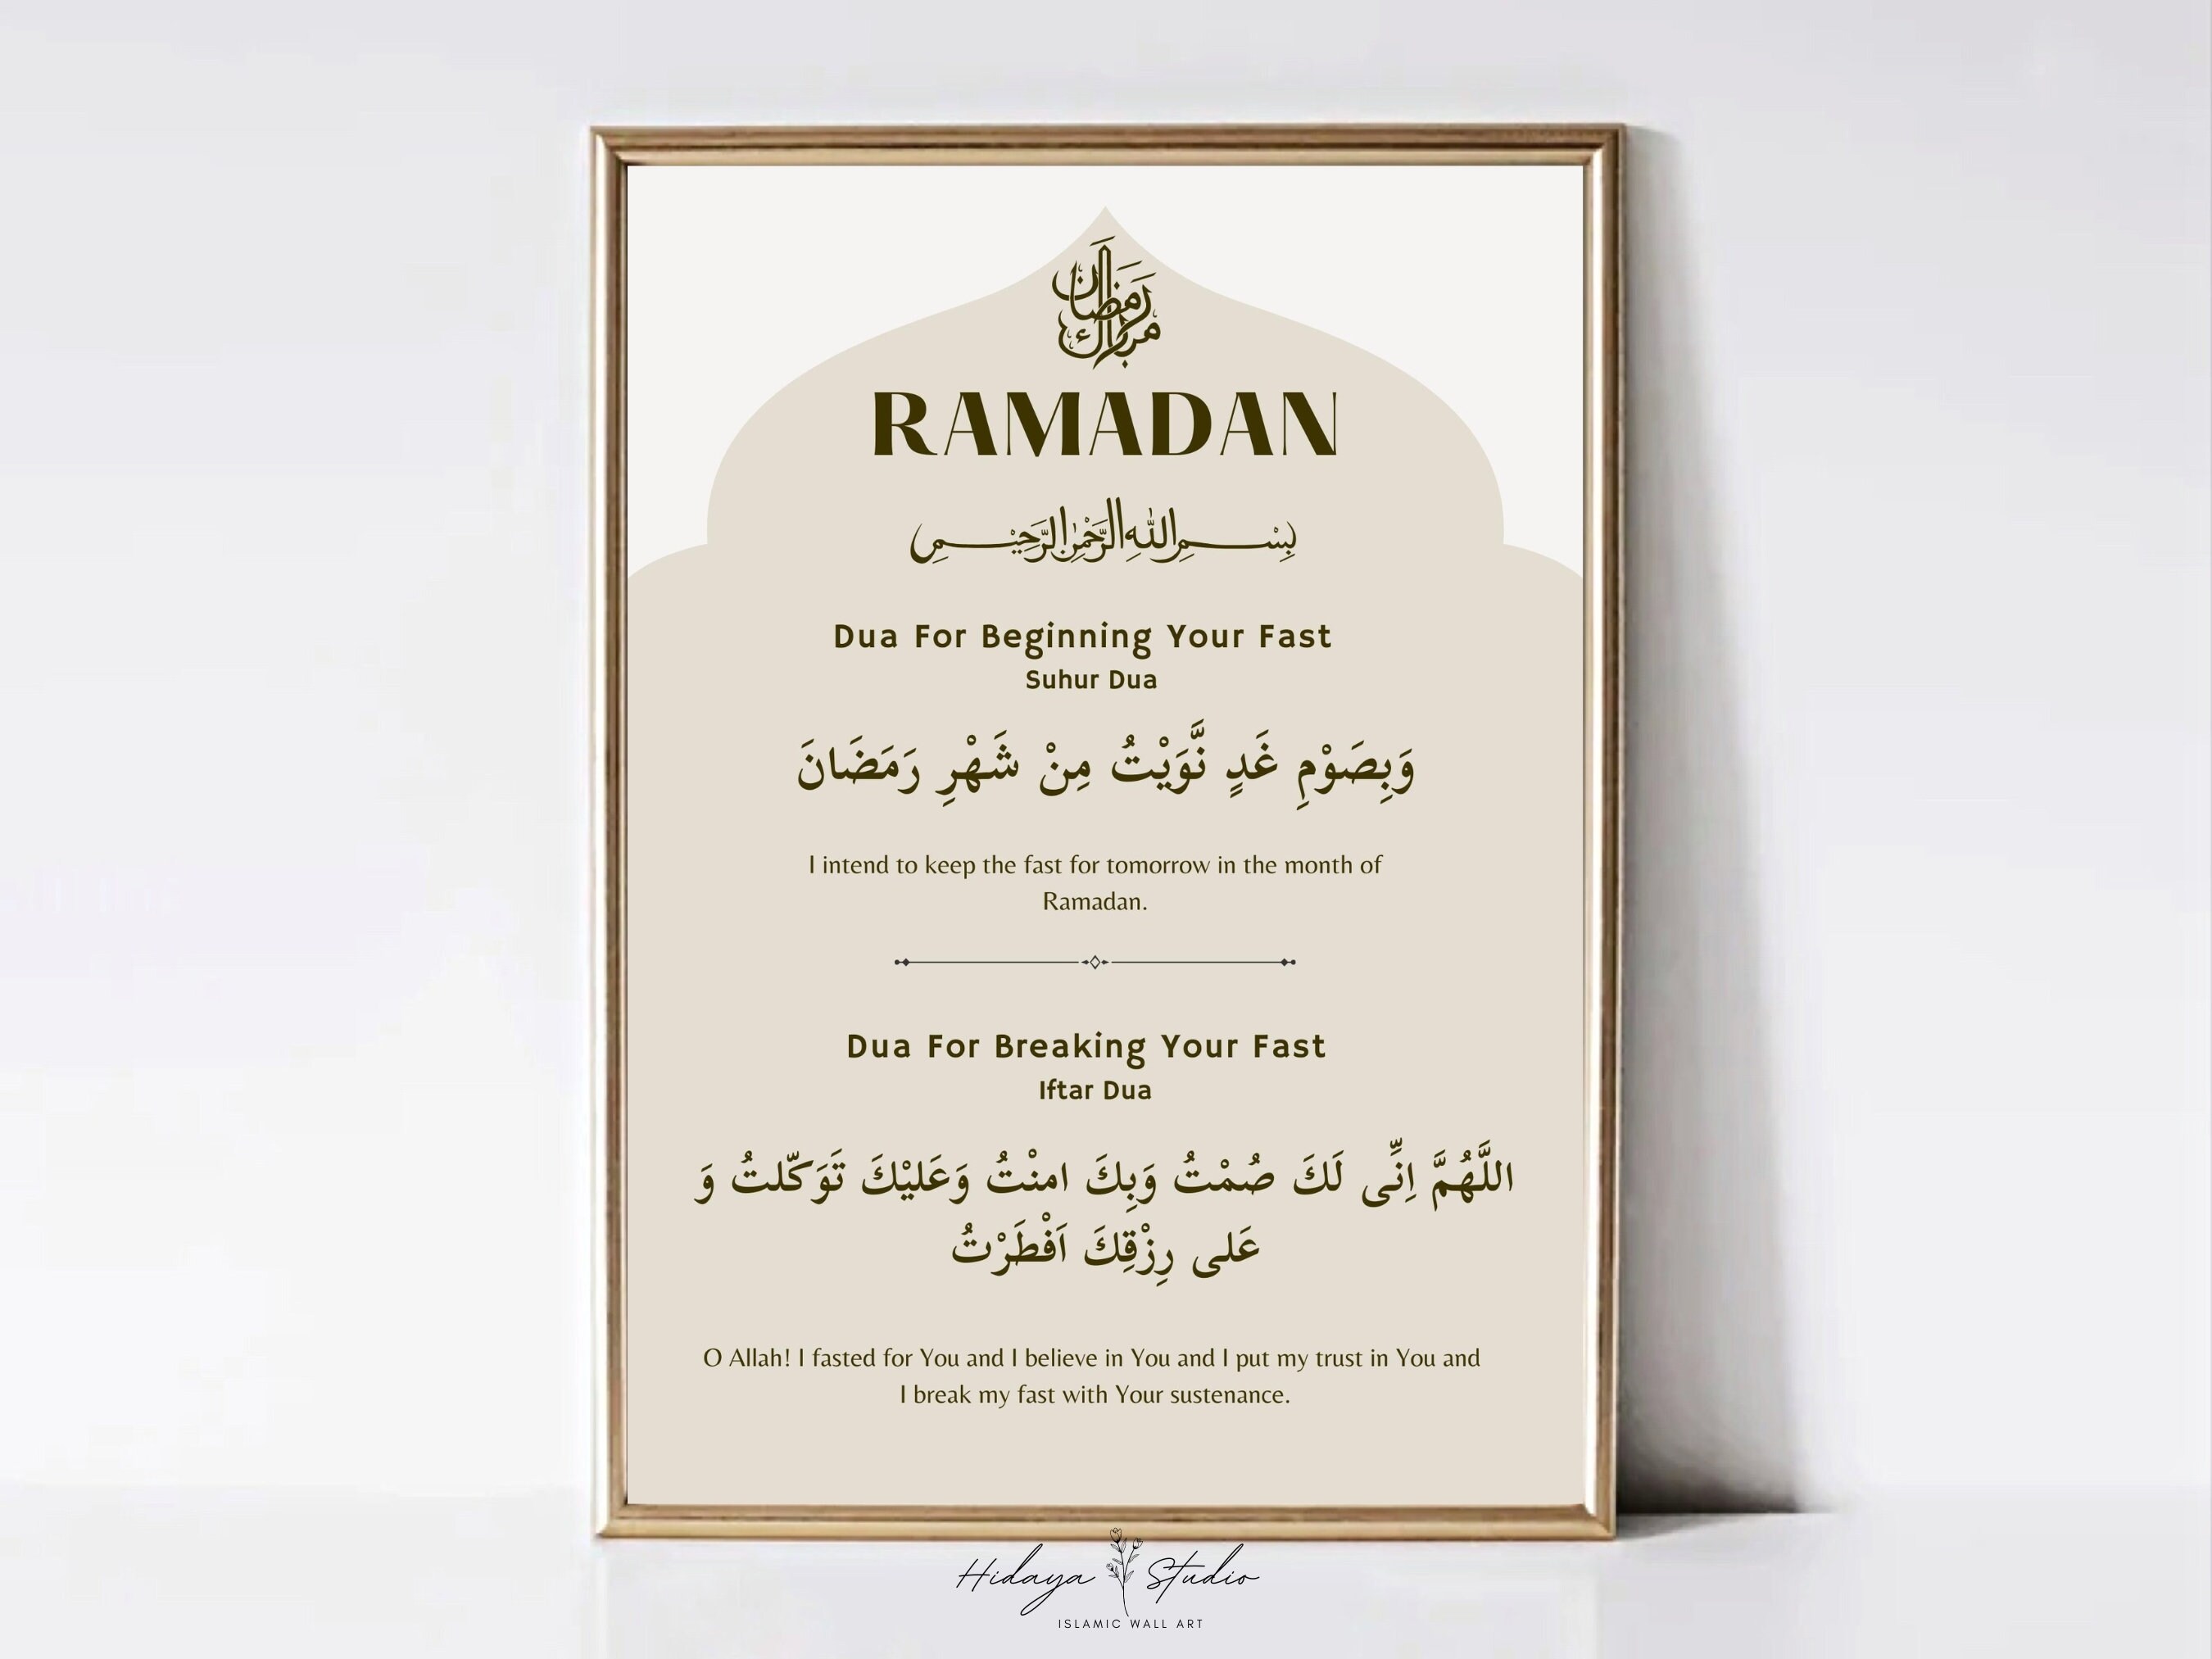 رمضان
مبارك
RAMADAN
بِسْمِ اللهِ الرَّحْمٰنِ الرَّحِيْمِ
Dua For Beginning Your Fast
Suhur Dua
وَبِصَوْمِ غَدٍ نَّوَيْتُ مِنْ شَهْرِ رَمَضَانَ
I intend to keep the fast for tomorrow in the month of
Ramadan.
Dua For Breaking Your Fast
Iftar Dua
اللَّهُمَّ اِنِّى لَكَ صُمْتُ وَبِكَ امنْتُ وَعَليْكَ تَوَكّلتُ وَ
عَلى رِزْقِكَ اَفْطَرْتُ
O Allah! I fasted for You and I believe in You and I put my trust in You and
I break my fast with Your sustenance.
Hidaya Studio
ISLAMIC WALL ART